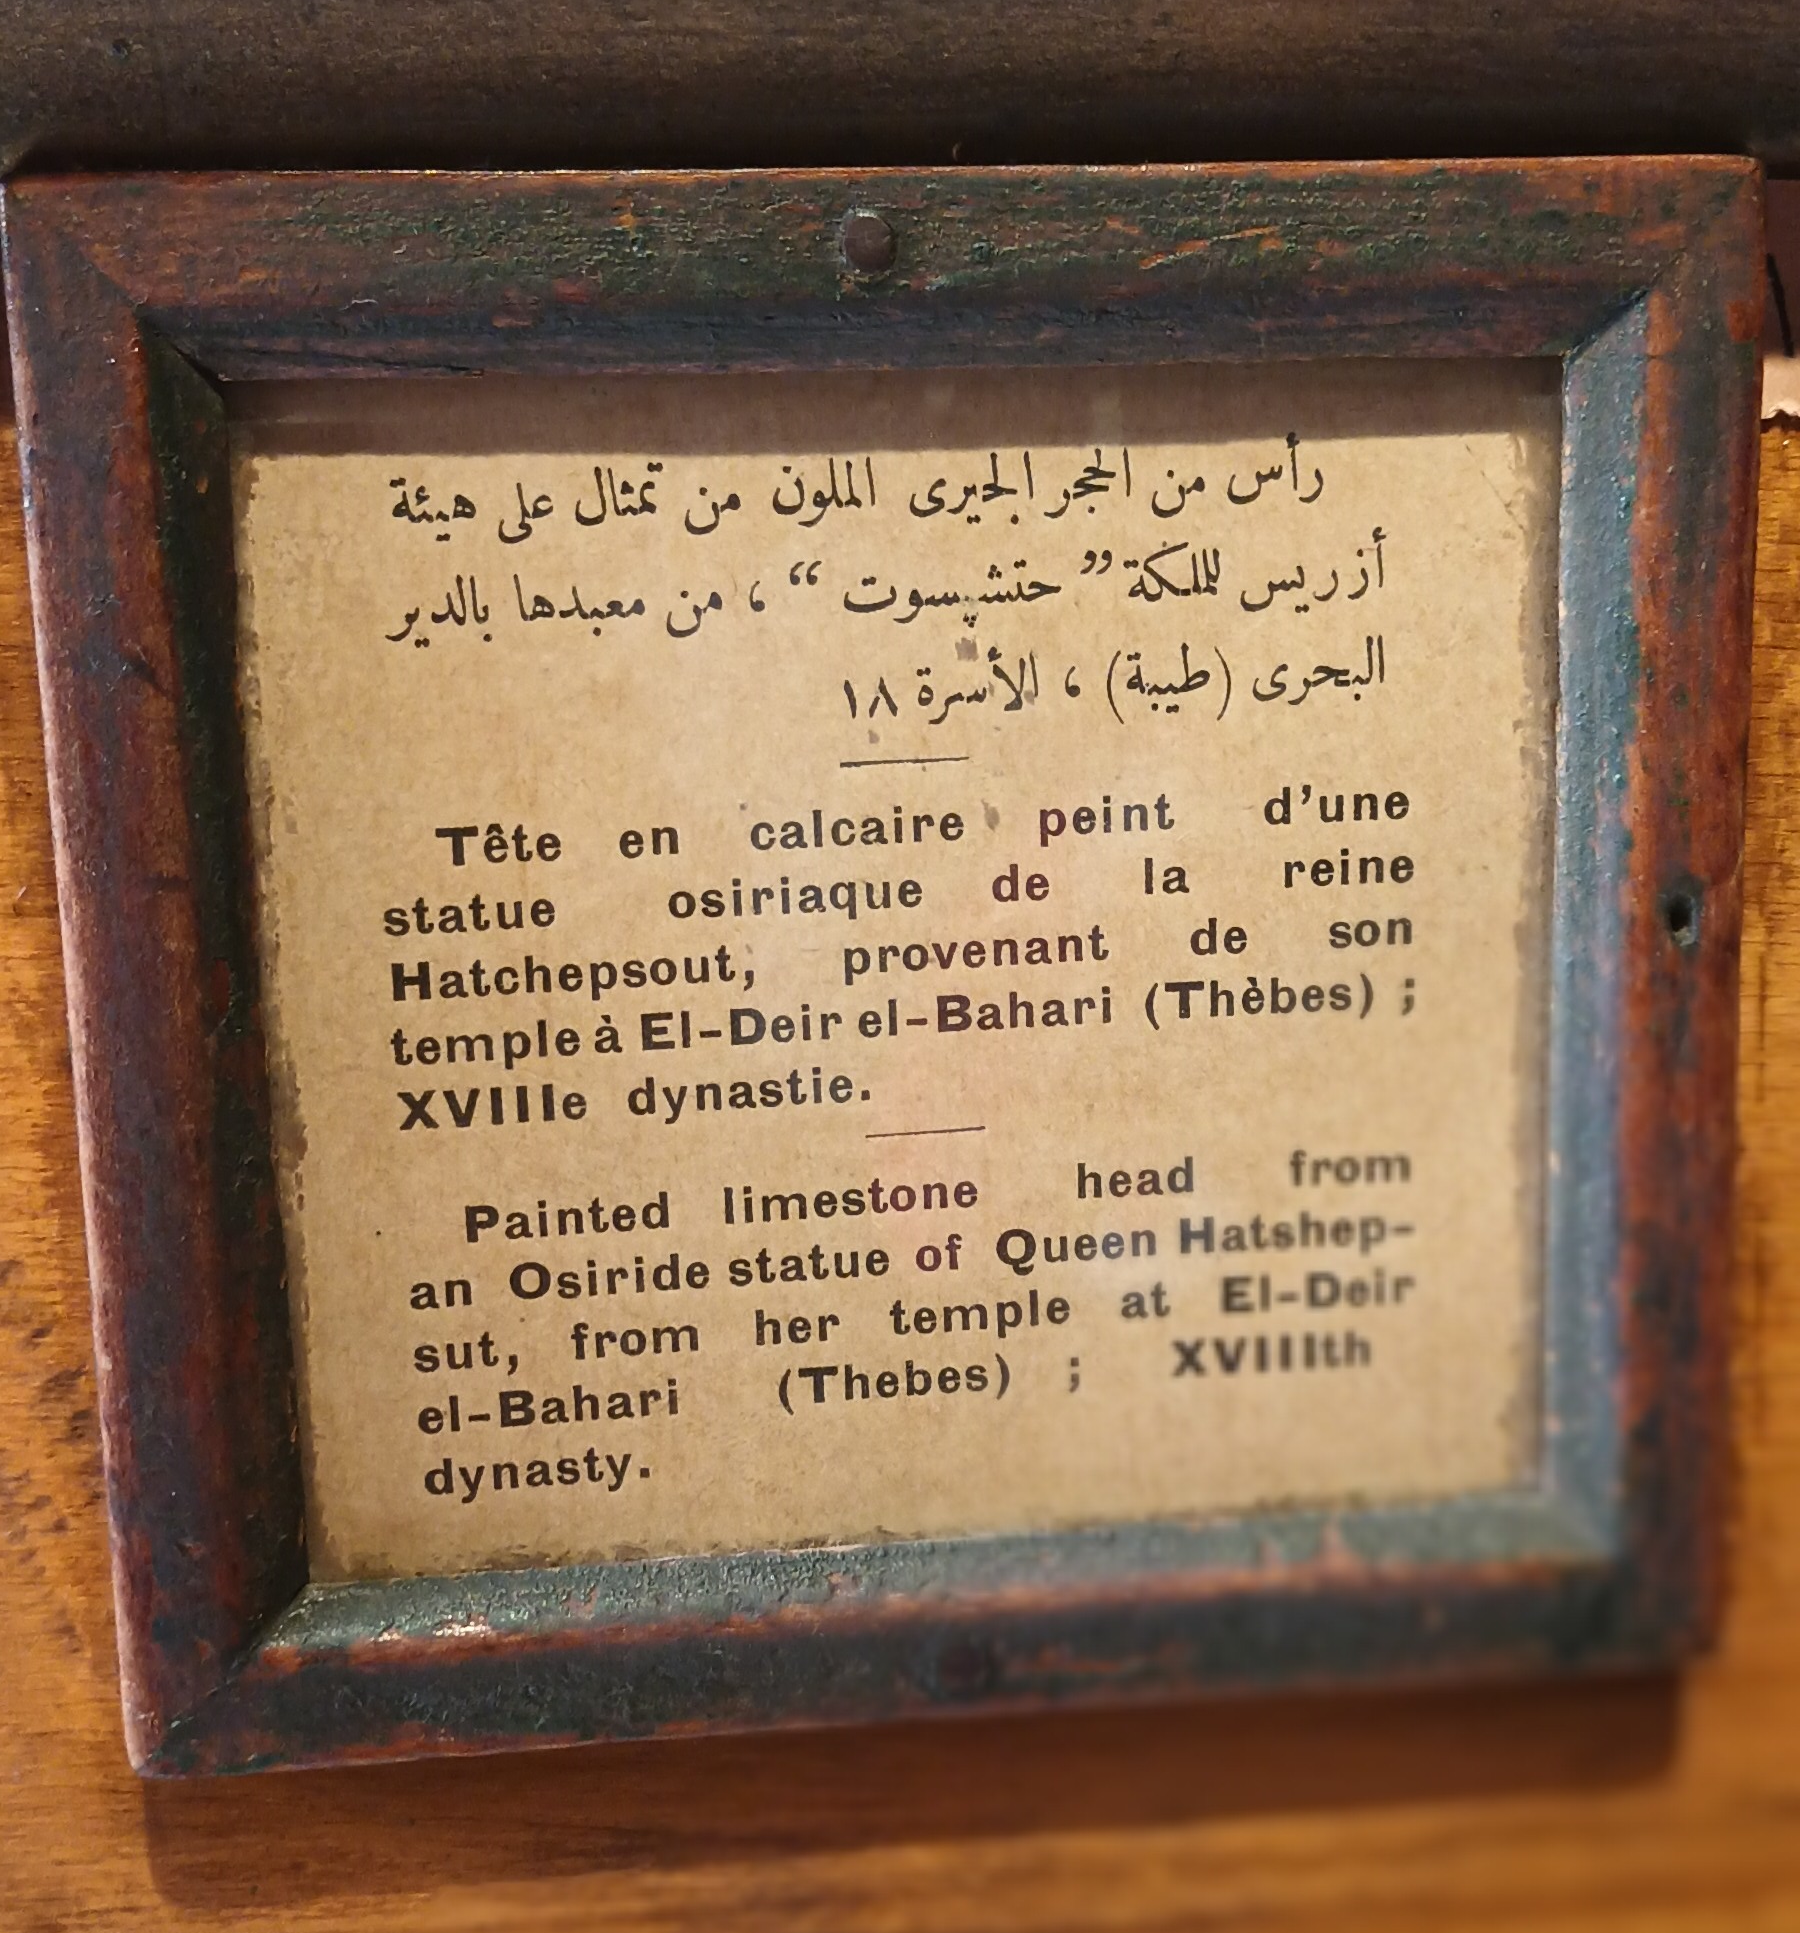 رأس من الحجر الجيرى الملون من تمثال على هيئة
أزريس للملكة ” حتشپسوت “ ، من معبدها بالدير
البحرى (طيبة) ، الأسرة ١٨
Tête en calcaire peint d'une
statue osiriaque de la reine
Hatchepsout, provenant de son
temple à El-Deir el-Bahari (Thèbes) ;
XVIIIe dynastie.
Painted limestone head from
an Osiride statue of Queen Hatshep-
sut, from her temple at El-Deir
el-Bahari (Thebes) ; XVIIIth
dynasty.